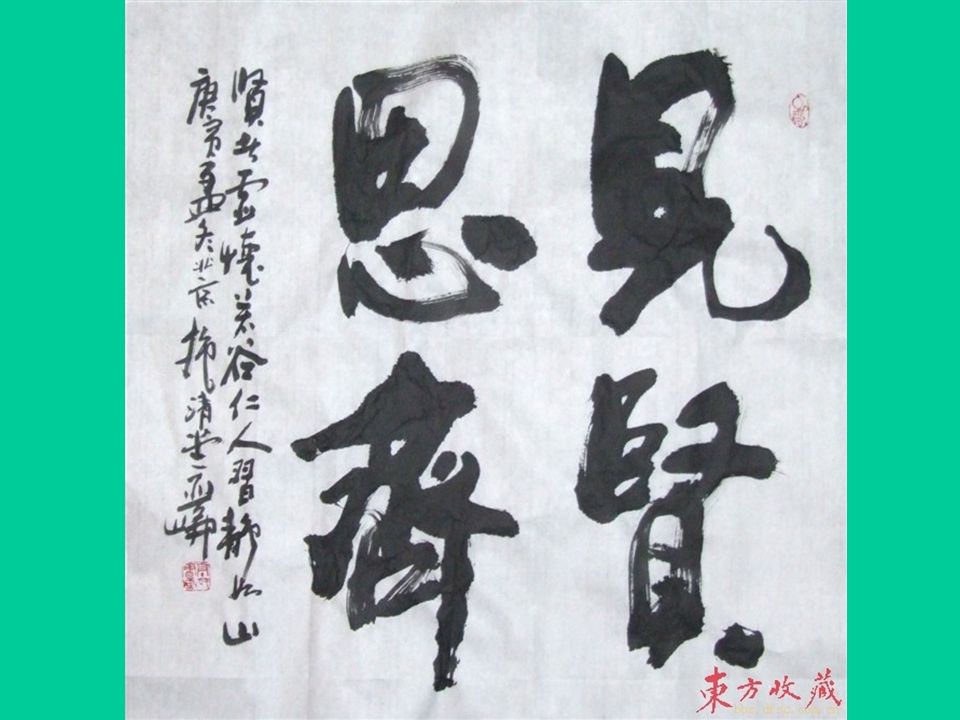 見賢
思齊
賢士虛懷若谷仁人習靜如山
庚寅孟冬北京抱清堂
東方收藏